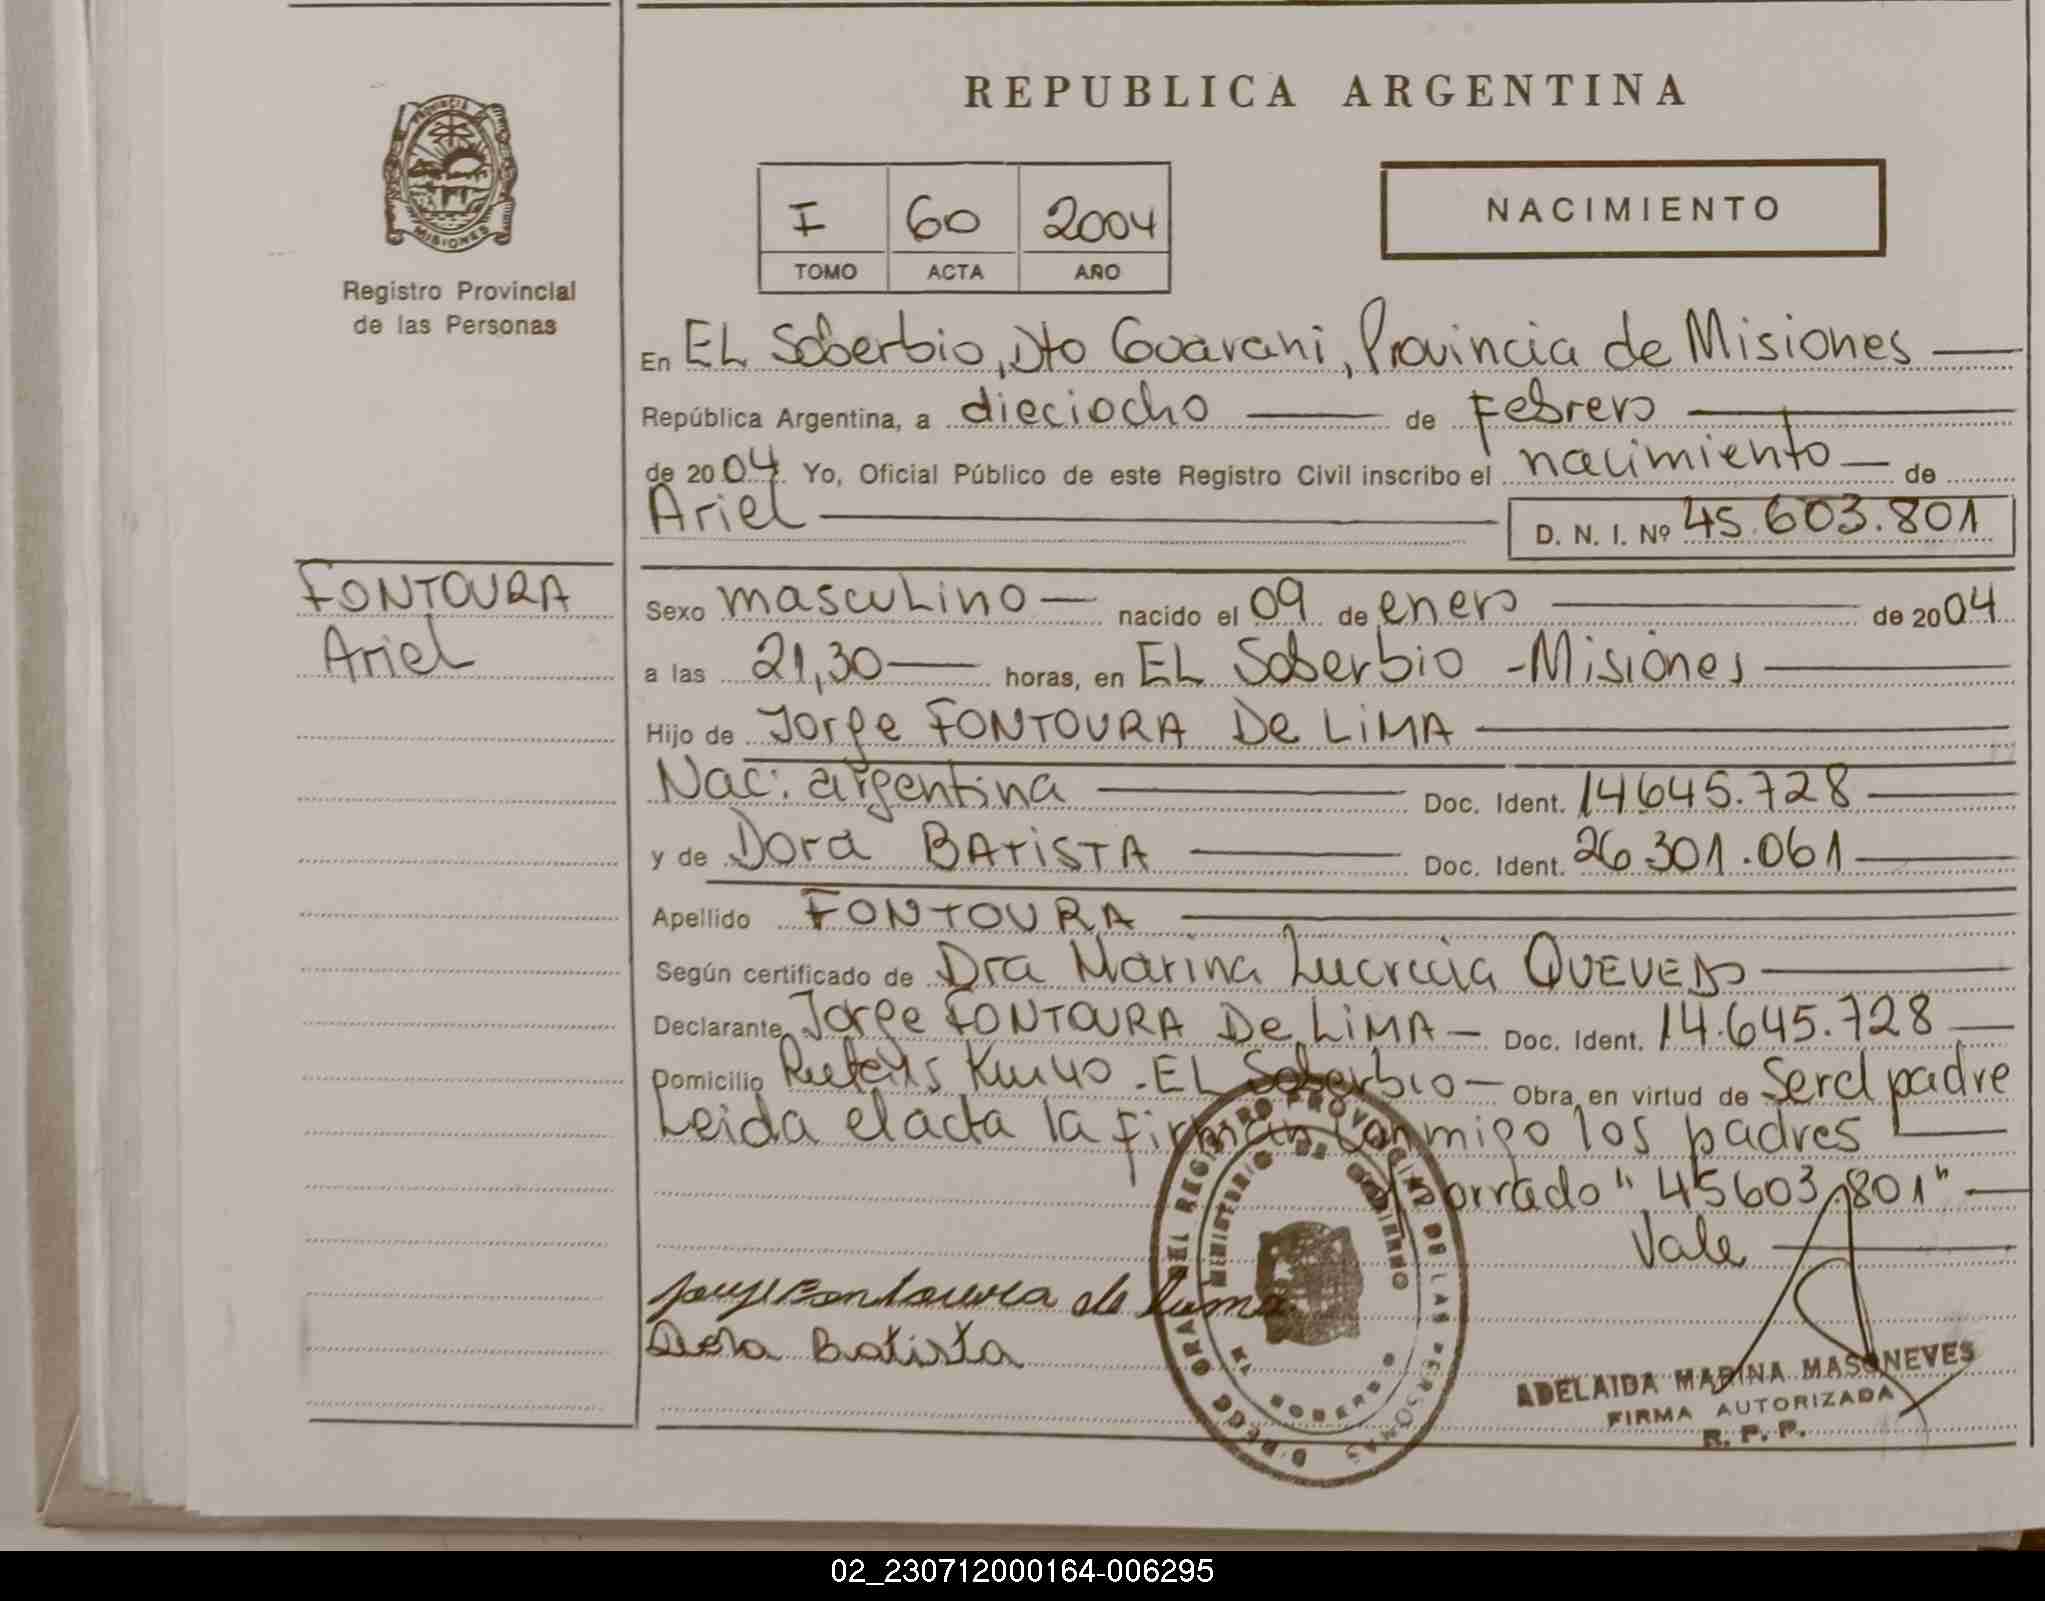 REPUBLICA ARGENTINA
PROVINCIA DE MISIONES
Registro Provincial
de las Personas
I 60 2004
TOMO ACTA AÑO
NACIMIENTO
En EL Soberbio, Dto Guarani, Provincia de Misiones
República Argentina, a dieciocho de Febrero
de 2004 Yo, Oficial Público de este Registro Civil inscribo el nacimiento de
Ariel D. N. I. Nº 45.603.801
FONTOURA
Ariel
Sexo mascuLino nacido el 09 de enero de 2004
a las 21,30 horas, en EL Soberbio - Misiones
Hijo de Jorge FONTOURA De LiMA
Nac: argentina Doc. Ident. 14645.728
y de Dora BATiSTA Doc. Ident. 26.301.061
Apellido FONTOURA
Según certificado de Dra Marina Lucrecia QUEVEDO
Declarante Jorge FONTOURA De LiMA - Doc. Ident. 14.645.728
Domicilio EL Soberbio - Obra en virtud de Ser el padre
Leida el acta la firman conmigo los padres
borrado "45603.801"
Vale
Jorge Fontoura de Lima
Dora Batista
DIRECC GRAL DEL REGISTRO PROVINCIAL DE LAS PERSONAS
MINISTERIO DE GOBIERNO
ADELAIDA MARINA MASONEVES
FIRMA AUTORIZADA
R. P. P.
02_230712000164-006295